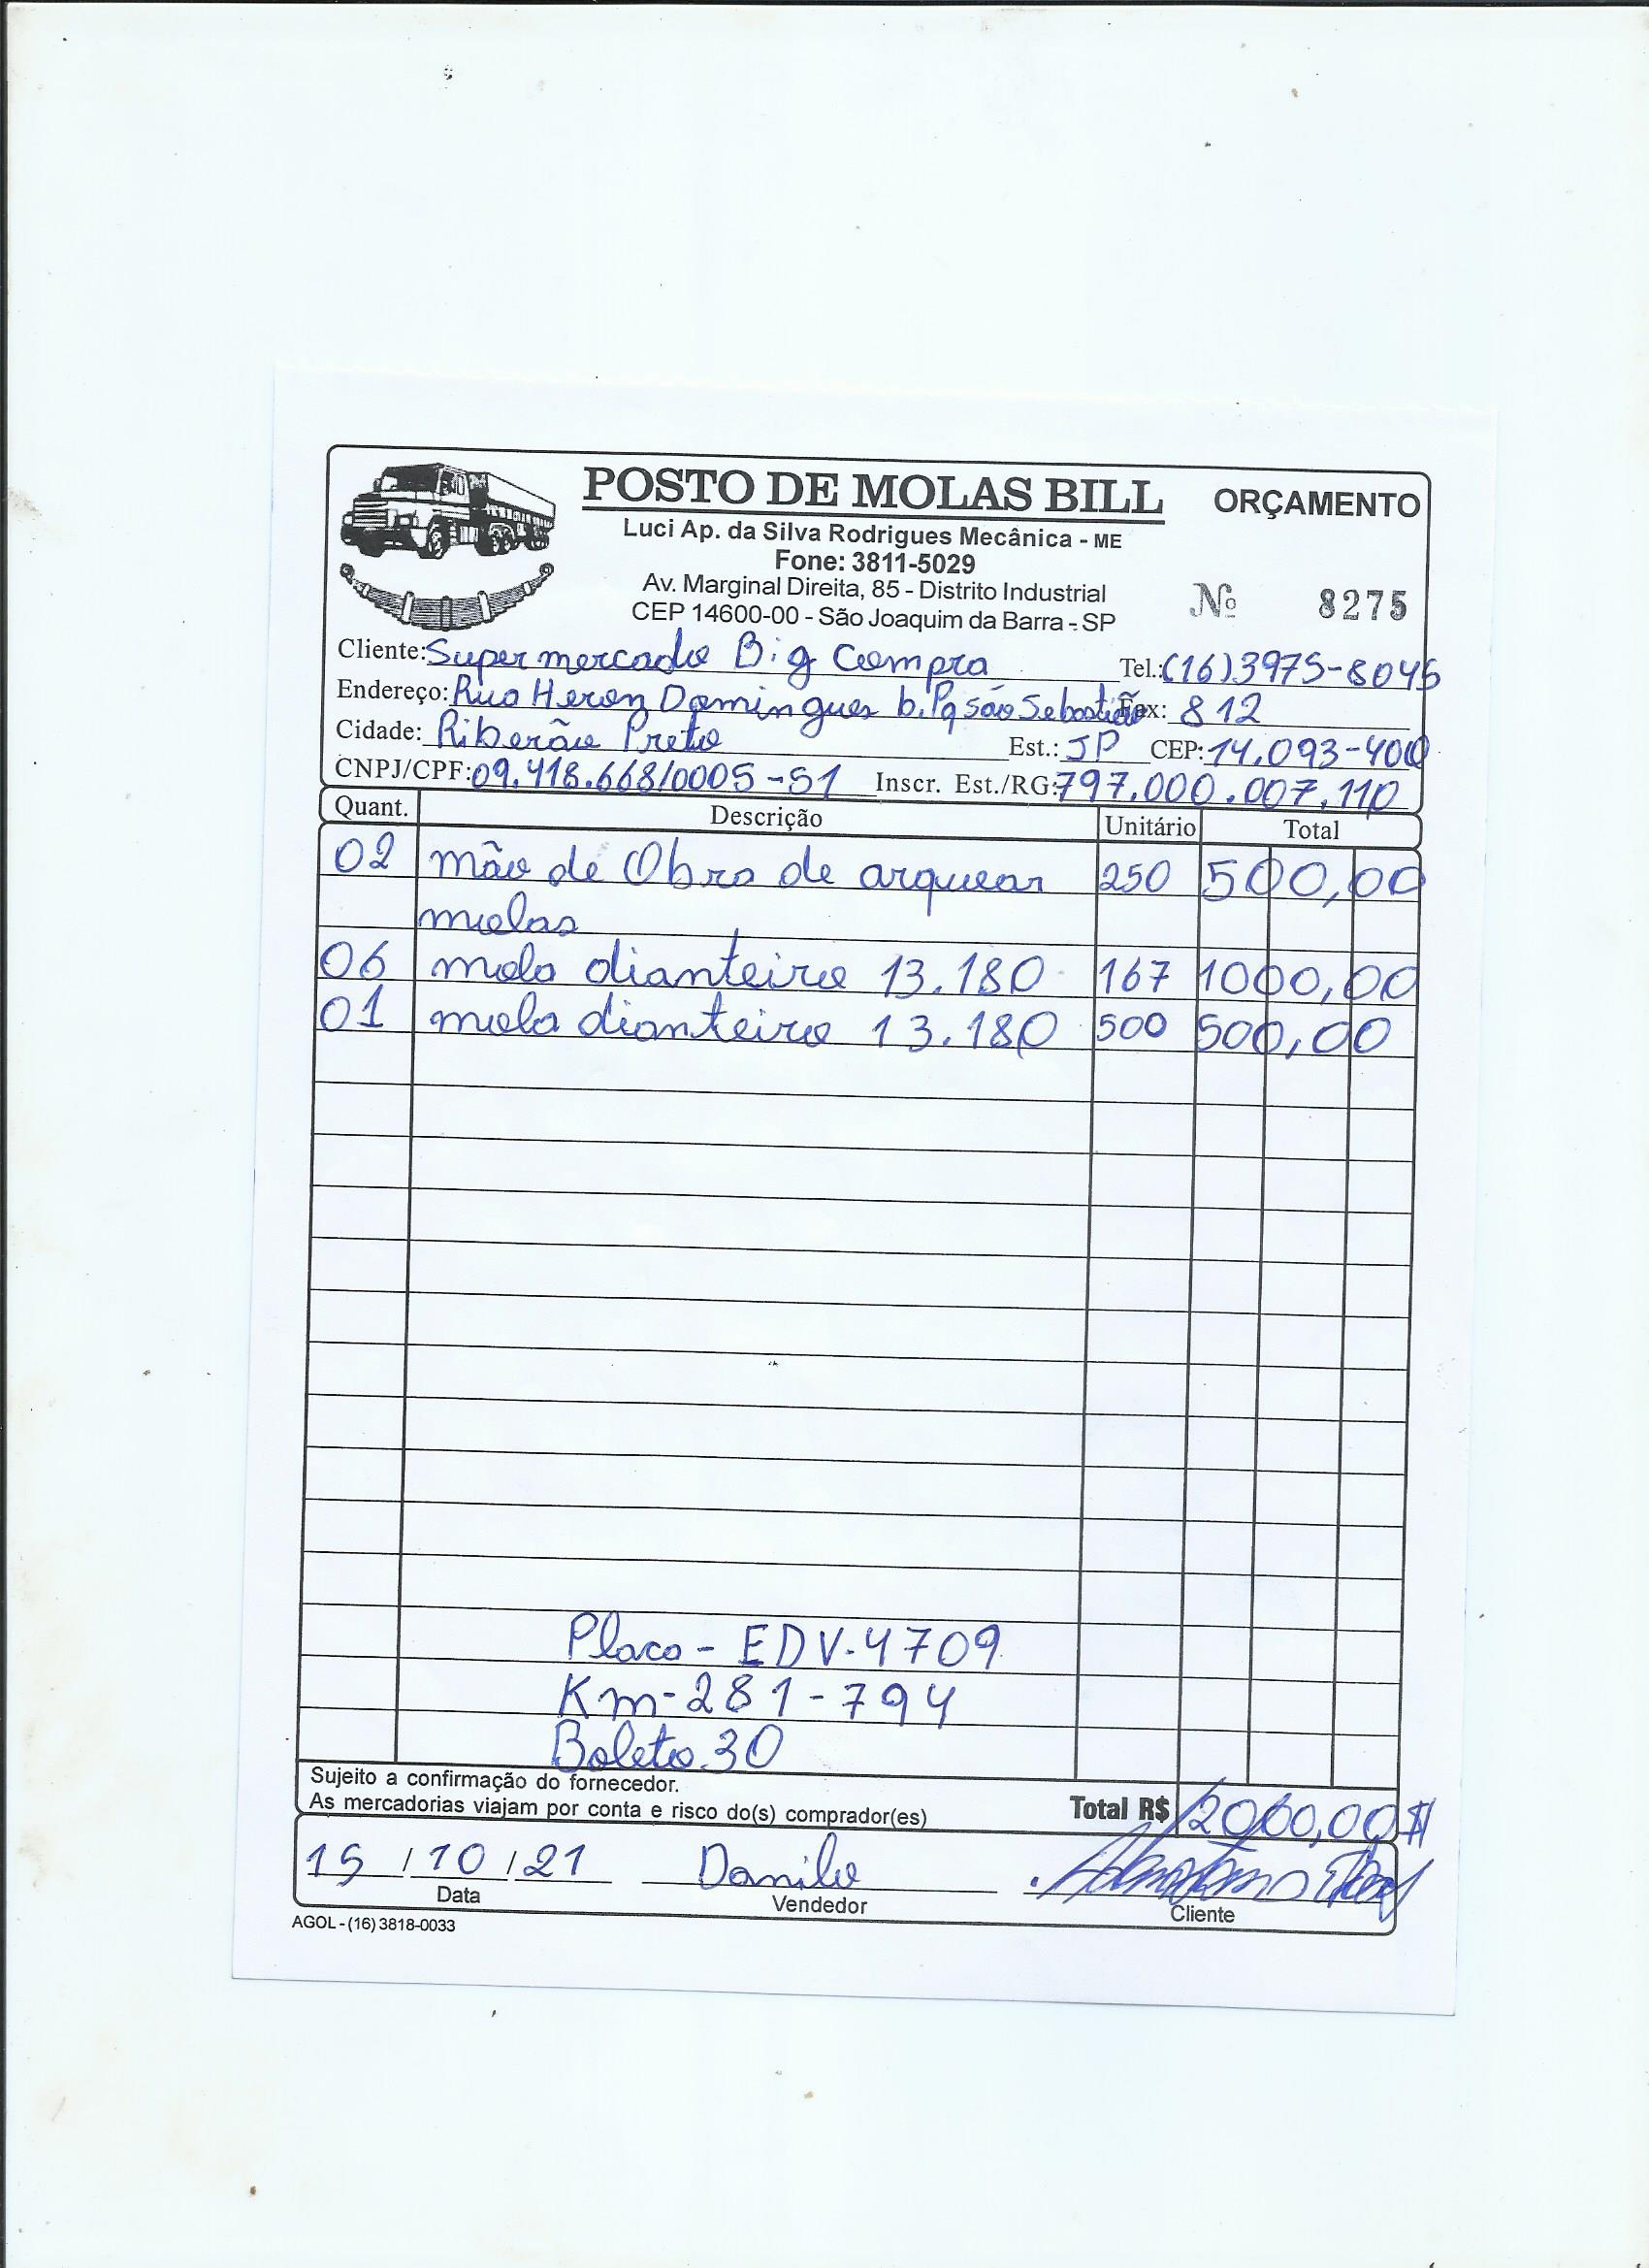 POSTO DE MOLAS BILL ORÇAMENTO
Luci Ap. da Silva Rodrigues Mecânica - ME
Fone: 3811-5029
Av. Marginal Direita, 85 - Distrito Industrial
CEP 14600-00 - São Joaquim da Barra - SP
Nº 8275
Cliente: Supermercado Big Compra Tel.: (16)3975-8045
Endereço: Rua Heron Domingues b. Pq são Sebastião Fax: 812
Cidade: Riberão Preto Est.: SP CEP: 14.093-400
CNPJ/CPF: 09.418.668/0005-51 Inscr. Est./RG: 797.000.007.110
Quant. Descrição Unitário Total
02 mão de Obra de arquear 250 500,00
molas
06 mola dianteira 13.180 167 1000,00
01 mola dianteira 13.180 500 500,00
Placa - EDV-4709
Km-281-794
Boleto.30
Sujeito a confirmação do fornecedor.
As mercadorias viajam por conta e risco do(s) comprador(es) Total R$ 2000,00
15 / 10 / 21 Danilo
Data Vendedor Cliente
AGOL - (16) 3818-0033